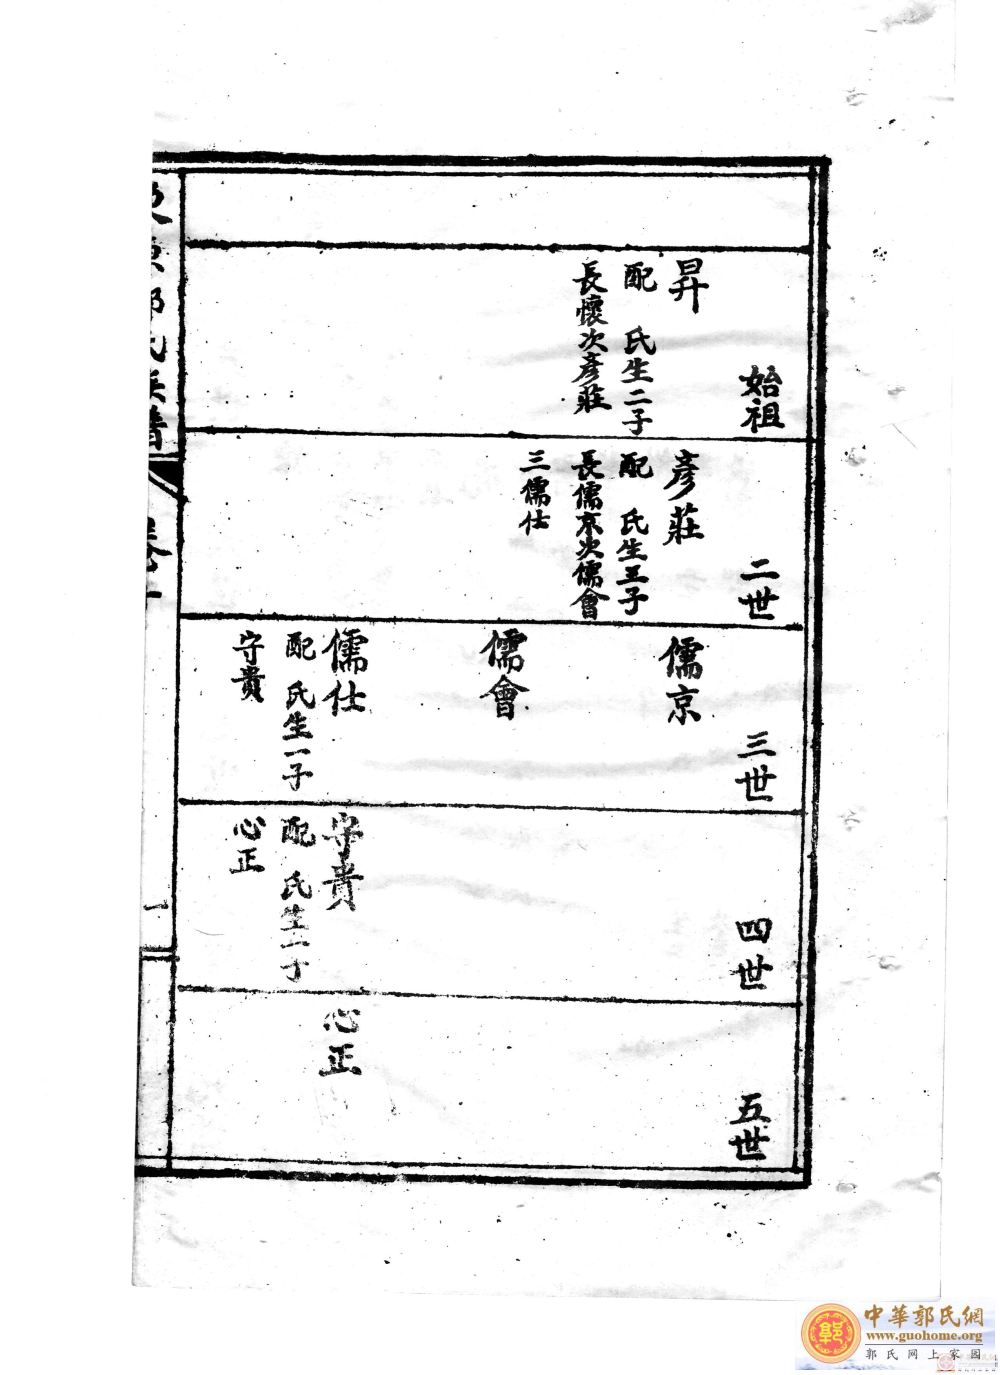 始祖
昇
配　氏生二子
長懷次彥莊
二世
彥莊
配　氏生三子
長儒京次儒會
三儒仕
三世
儒京
儒會
儒仕
配　氏生一子
守貴
四世
守貴
配　氏生一丁
心正
五世
心正
氏族譜
卷
一
中華郭氏網
www.guohome.org
郭氏网上家园